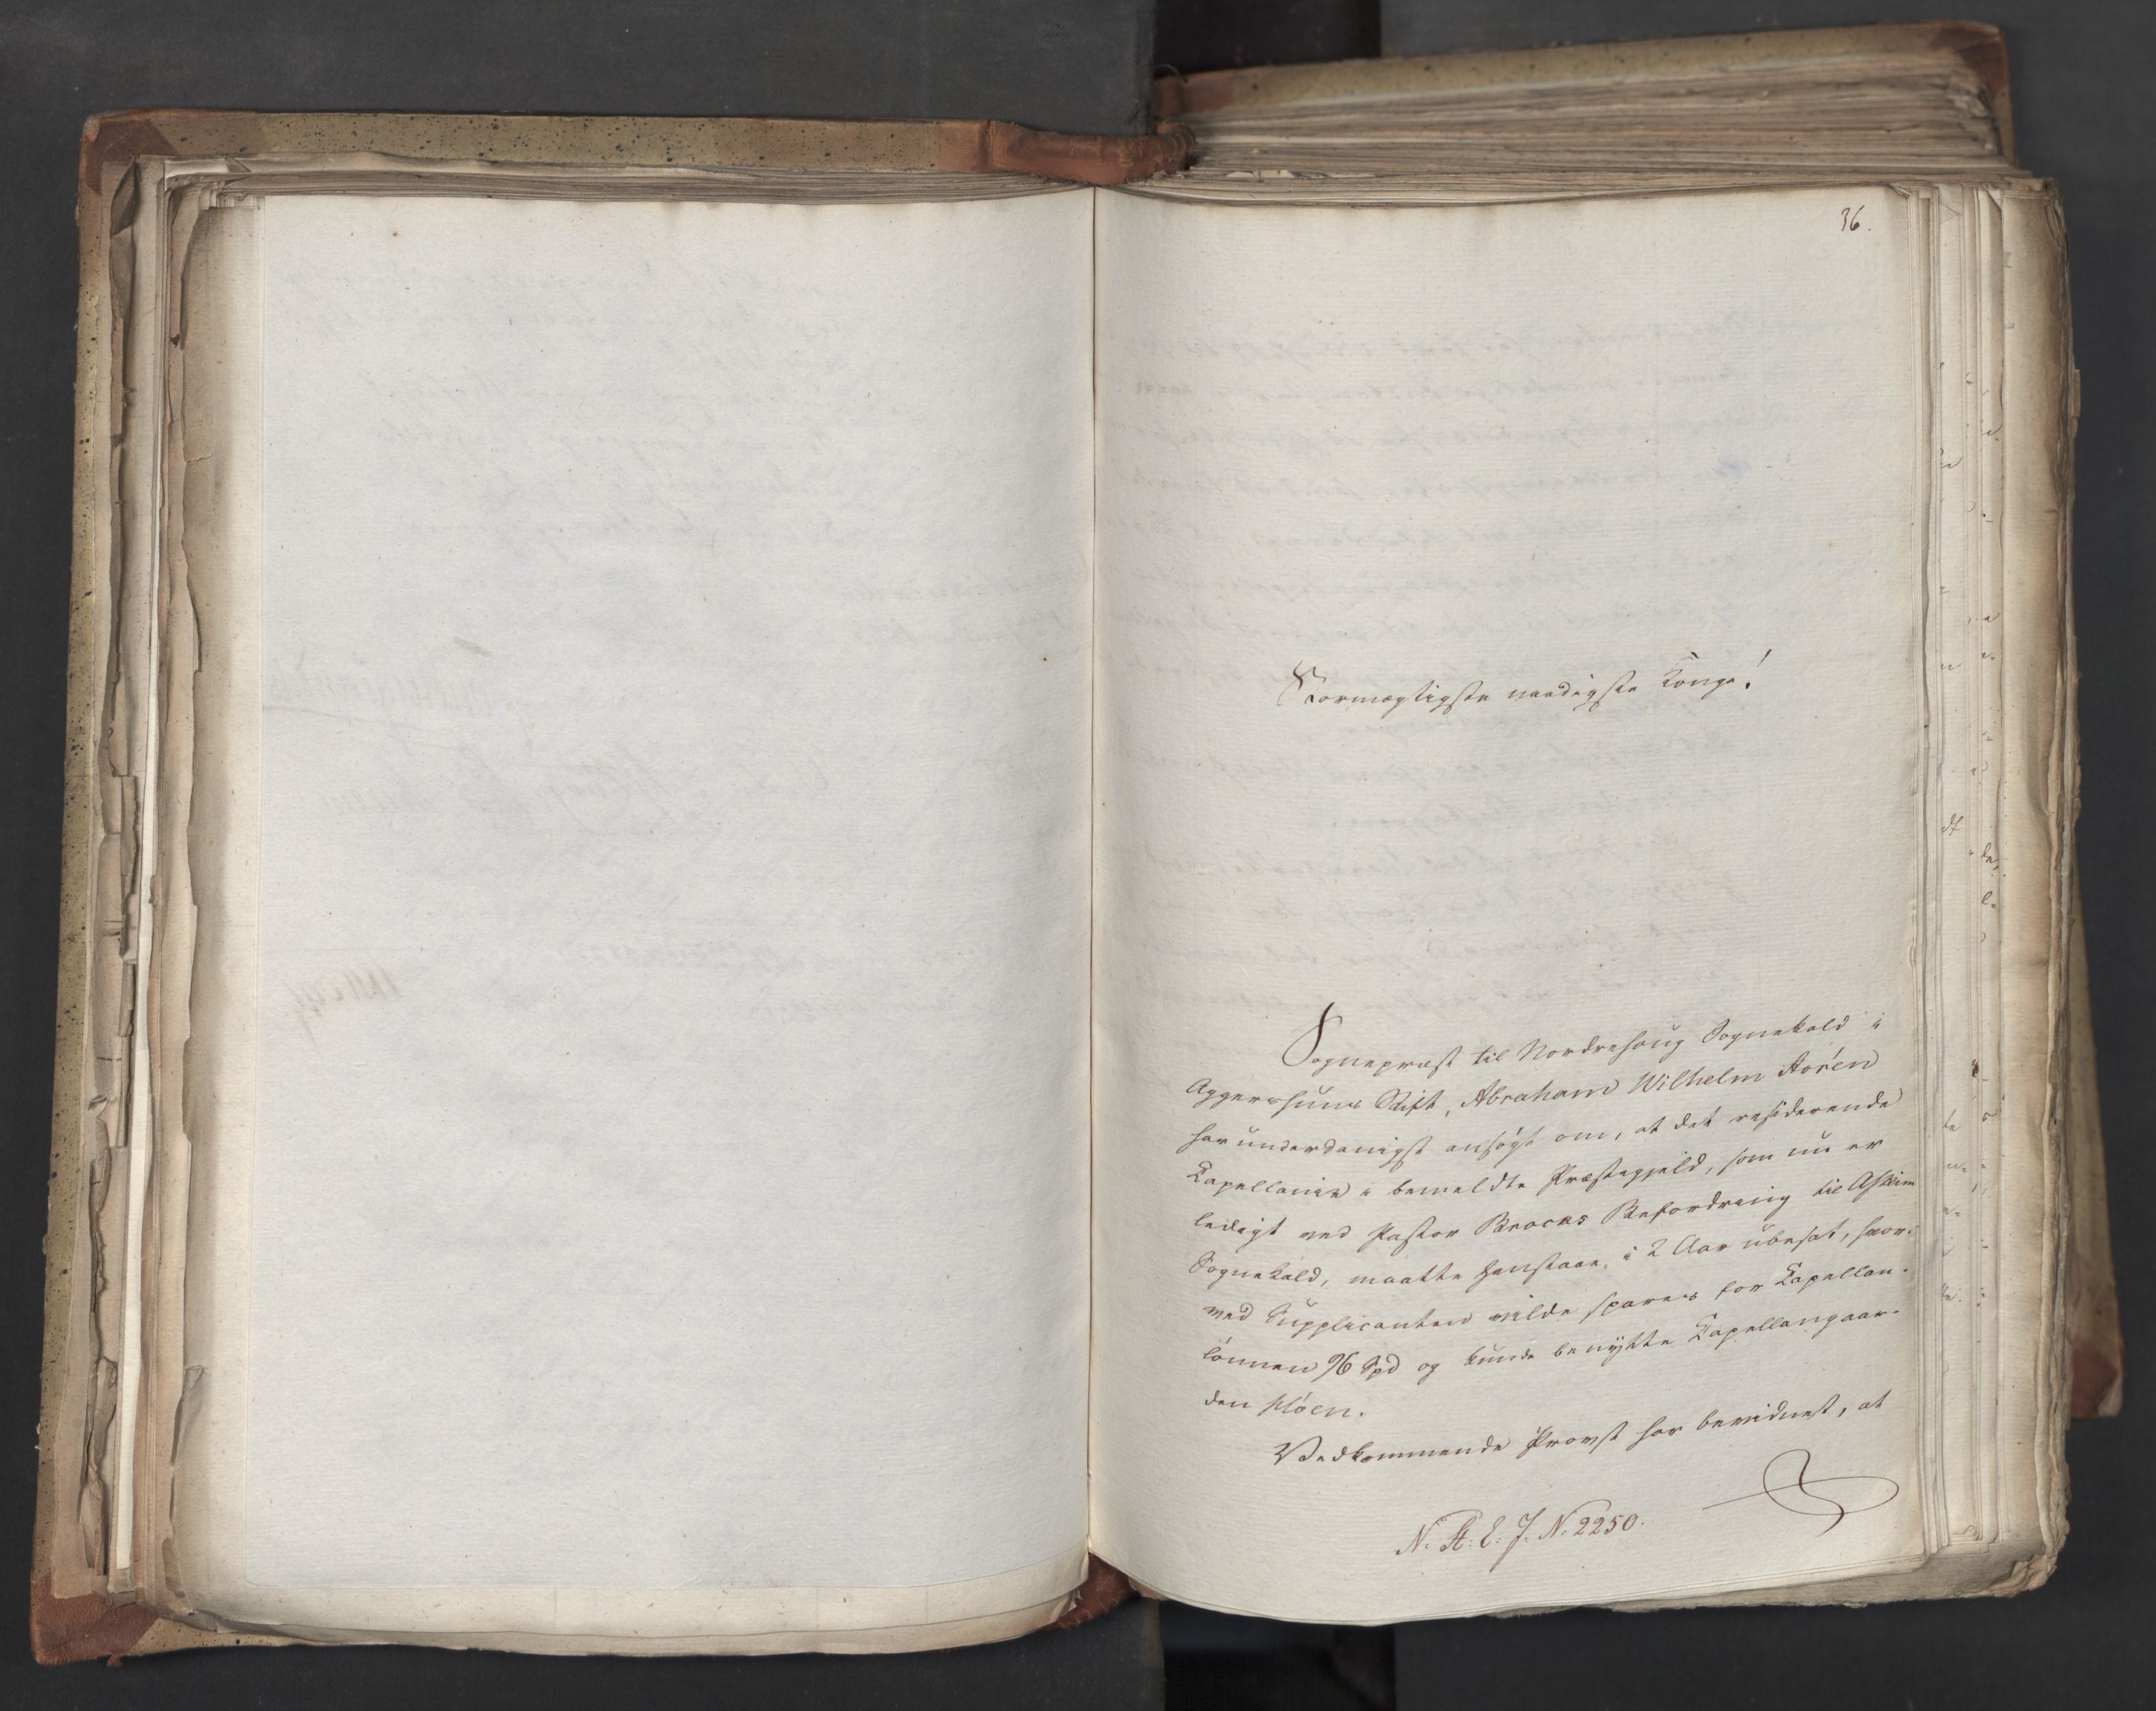 36.
Stormægtigste naadigste Konge!
Sognepræst til Nordrehoug Sognekald i
Aggershuus Stift, Abraham Wilhelm Støren
har underdanigst ansøgt om, at det residerende
Kapellanie i bemeldte Præstegjeld, som nu er
ledigt ved Pastor Brocks Befordring til Askim
Sognekald, maatte henstaae i 2 Aar ubesat, hvor-
ved Supplicanten vilde spares for Kapellan-
lønnen 96 Spd og kunde benytte Kapellangaar-
den
Vedkommende Provst har bevidnet, at
N. A. E. J. N. 2250.